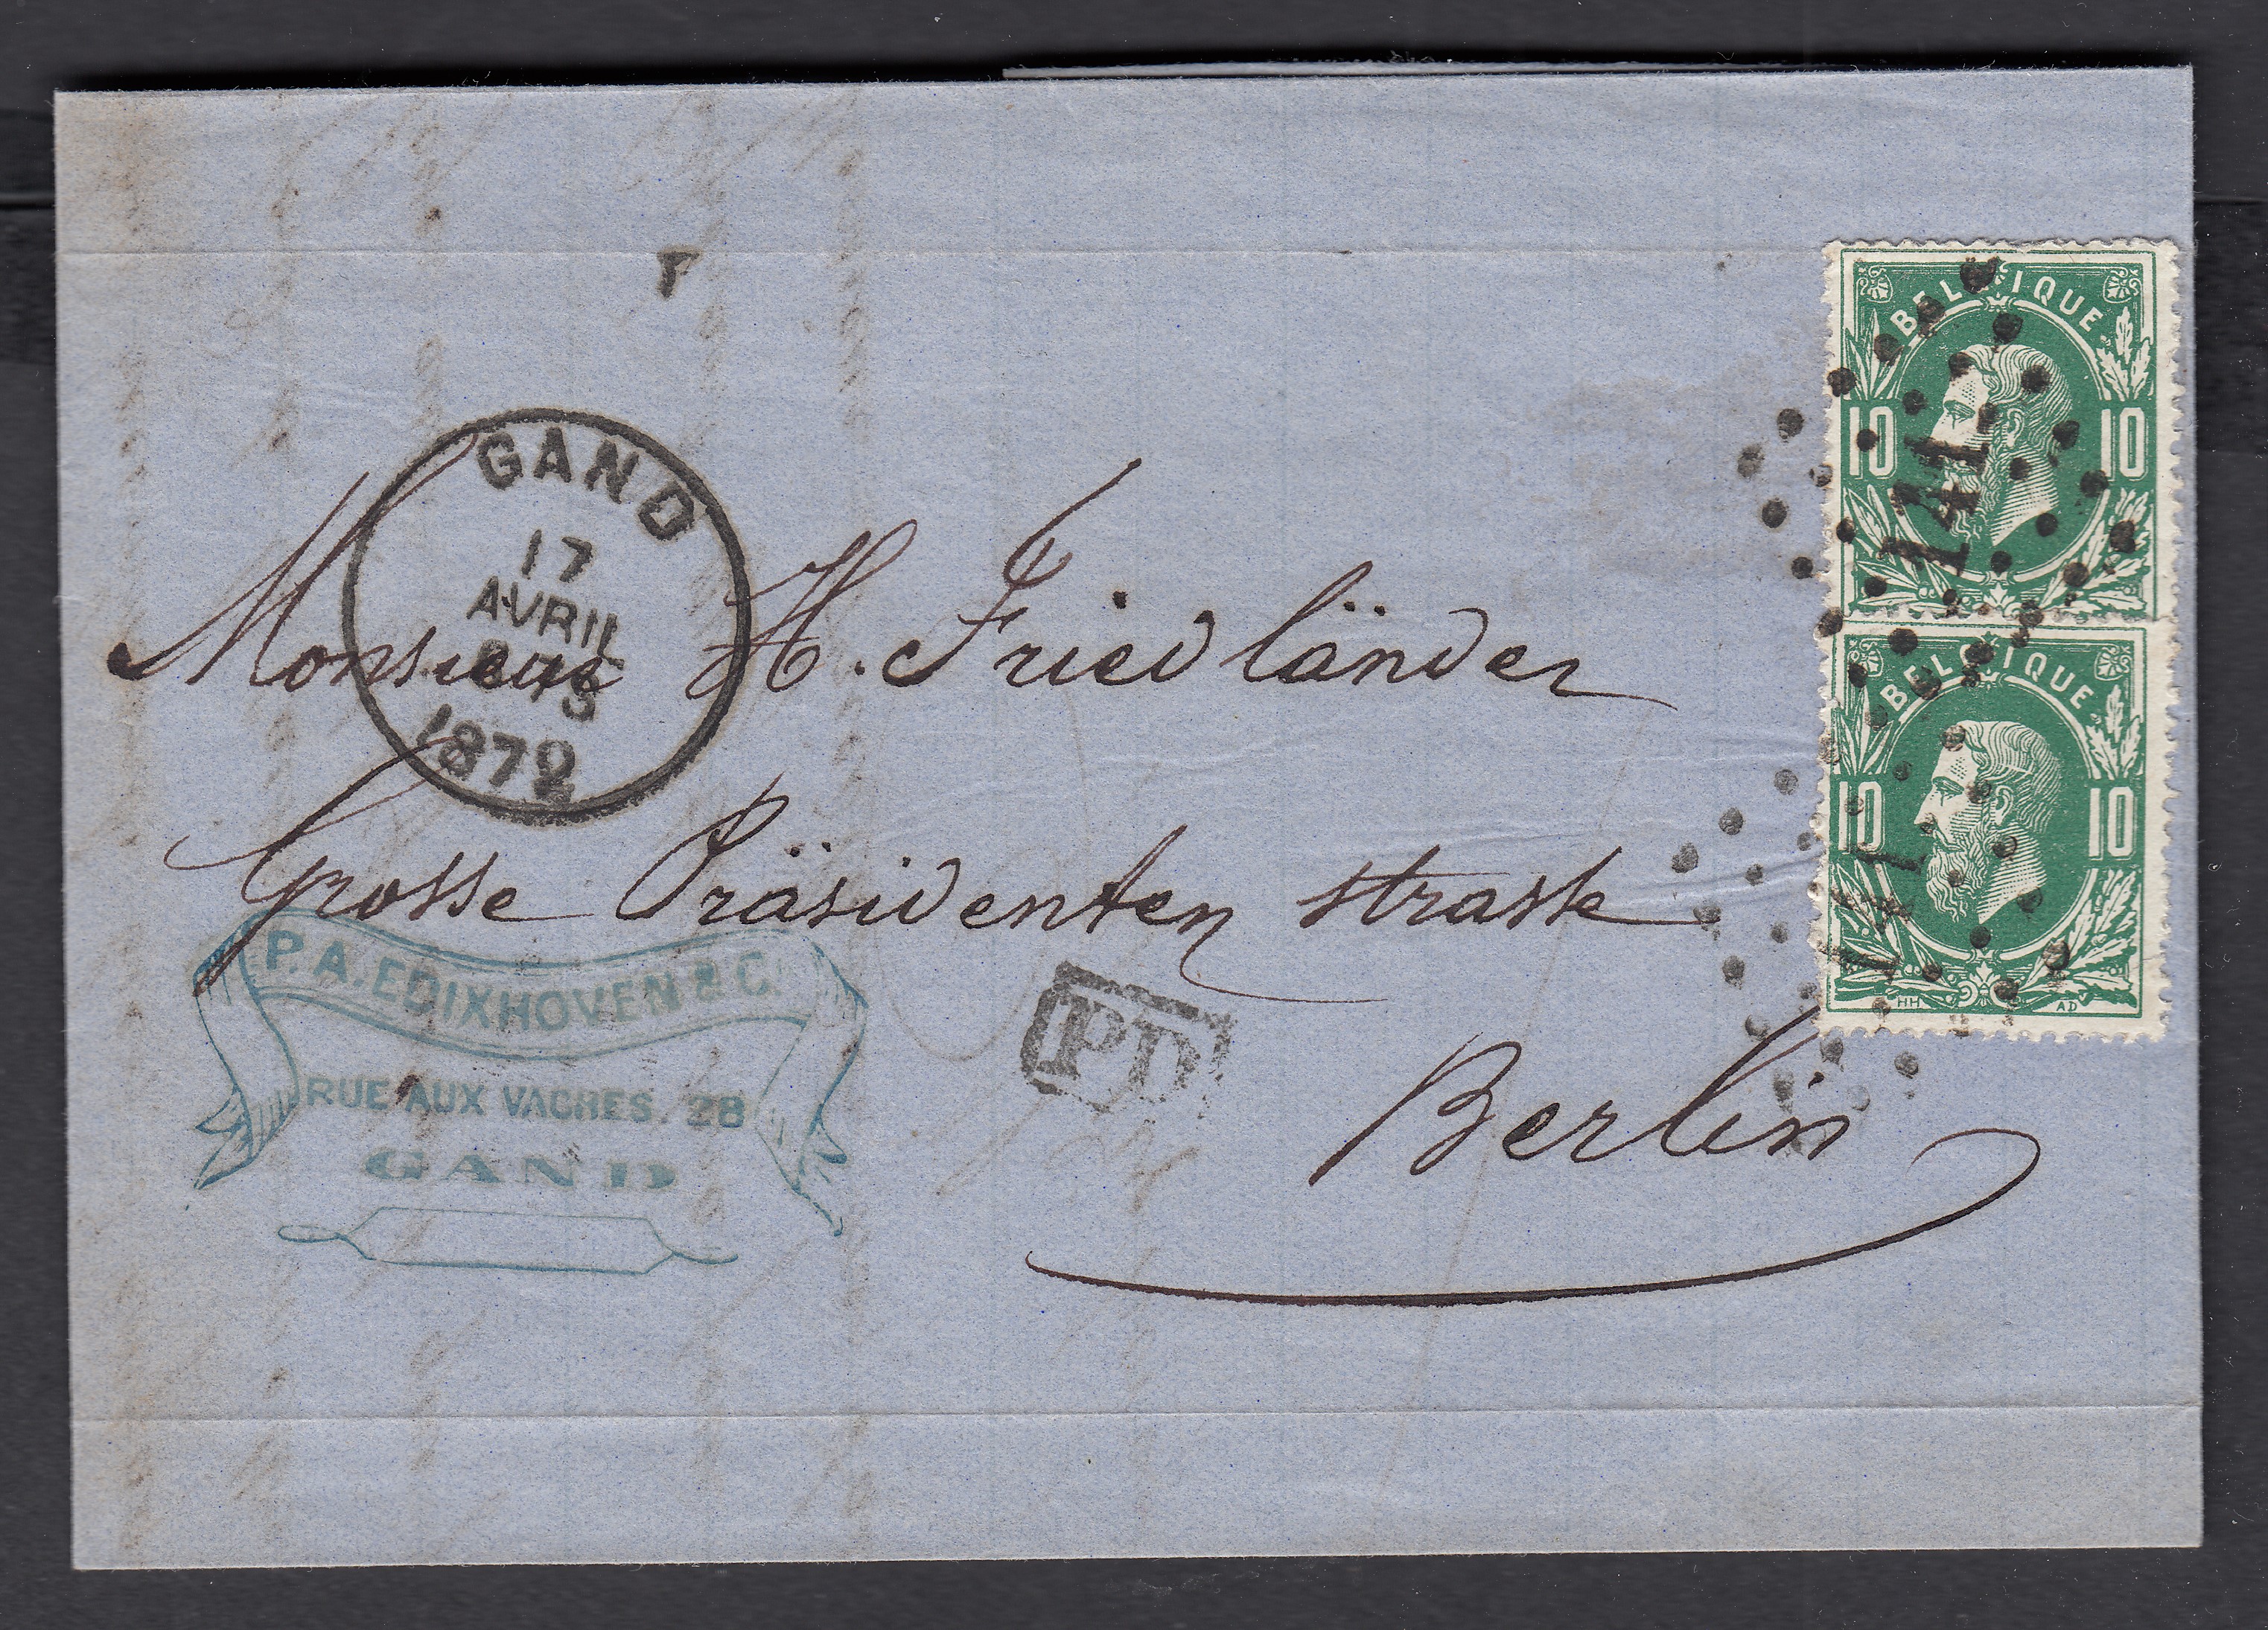 GAND
17
AVRIL
1872
Monsieur H. Friedländer
Grosse Präsidenten strasse
Berlin
P. A. EDIXHOVEN & C.
RUE AUX VACHES. 28
GAND
PD
BELGIQUE
10 10
141
BELGIQUE
10 10
141
HH AD